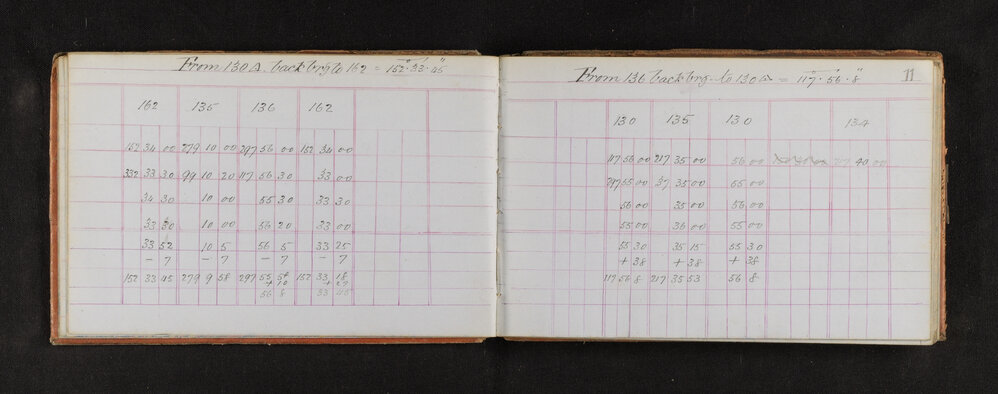 From 130 △. back brg to 162 = 152°.33'.45"
162 135 136 162
152 34 00 279 10 00 297 56 00 152 34 00
332 33 30 99 10 20 117 56 30 33 00
34 30 10 00 55 30 33 30
33 30 10 00 56 20 33 00
33 52 10 5 56 5 33 25
- 7 - 7 - 7 - 7
152 33 45 279 9 58 297 55 58 152 33 18
+ 10 + 27
56 8 33 45
11
From 136 back brg. to 130 △ = 117°.56'.8"
130 135 130 134
117 56 00 217 35 00 56 00 40 00
297 55 00 37 35 00 55 00
56 00 35 00 56 00
55 00 36 00 55 00
55 30 35 15 55 30
+ 38 + 38 + 38
117 56 8 217 35 53 56 8